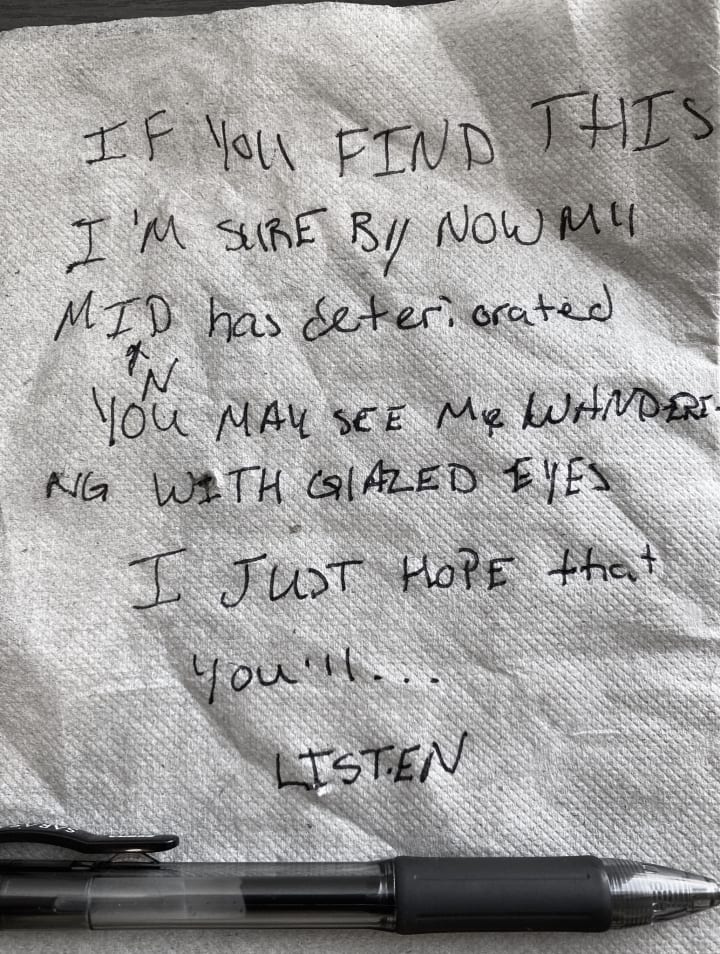 IF YOU FIND THIS
I'M SURE BY NOW MY
MID has deteriorated
^N
YOU MAY SEE Me WANDERI-
NG WITH GlAZED EYES
I JUST HOPE that
you'll...
LISTEN